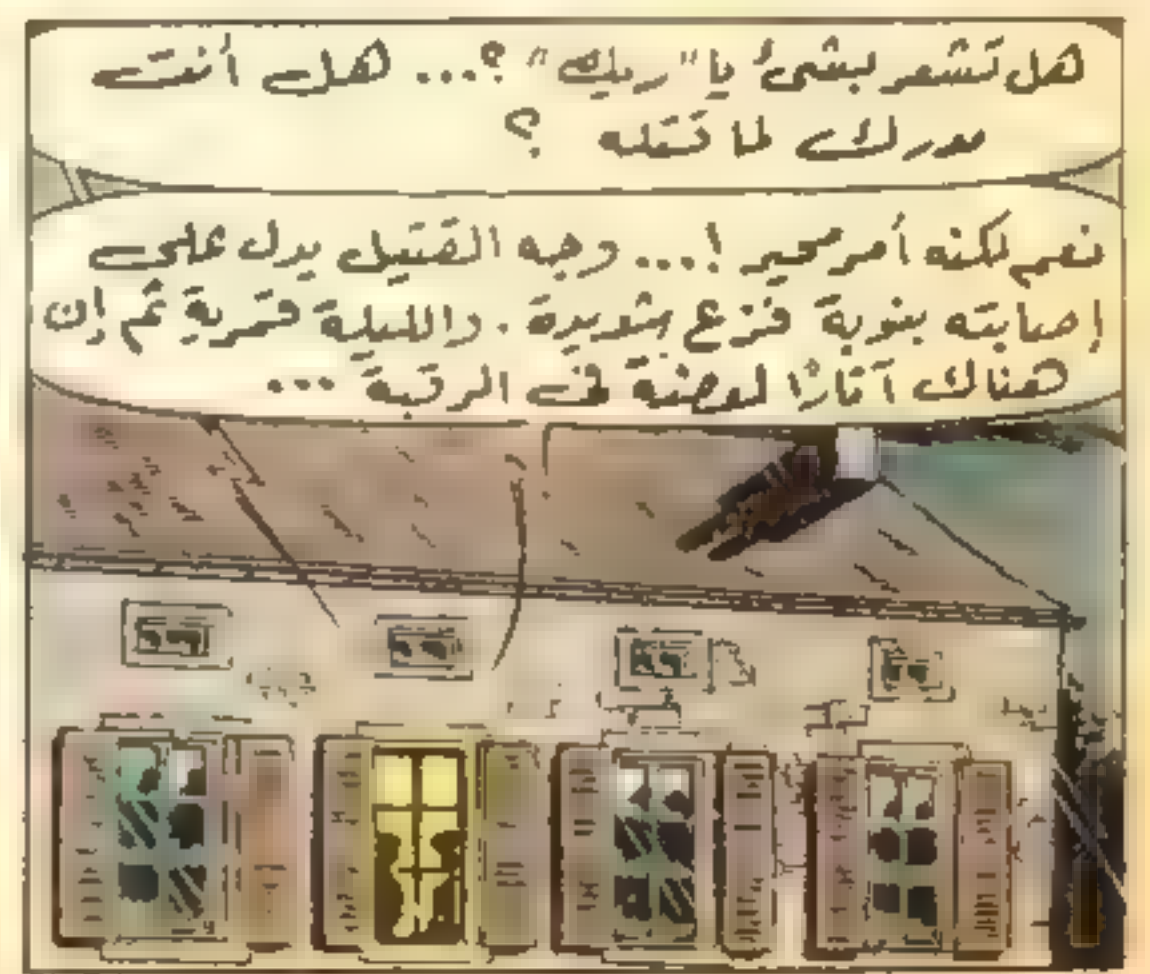 هل تشعر بشئ يا "ريك" ؟... هل أنت
مدرك لما قتله ؟
نعم لكنه أمر محير !... وجه القتيل يدل على
إصابته بنوبة فزع شديدة . والليلة قمرية ثم إن
هناك آثارًا لعضة فى الرقبة ...